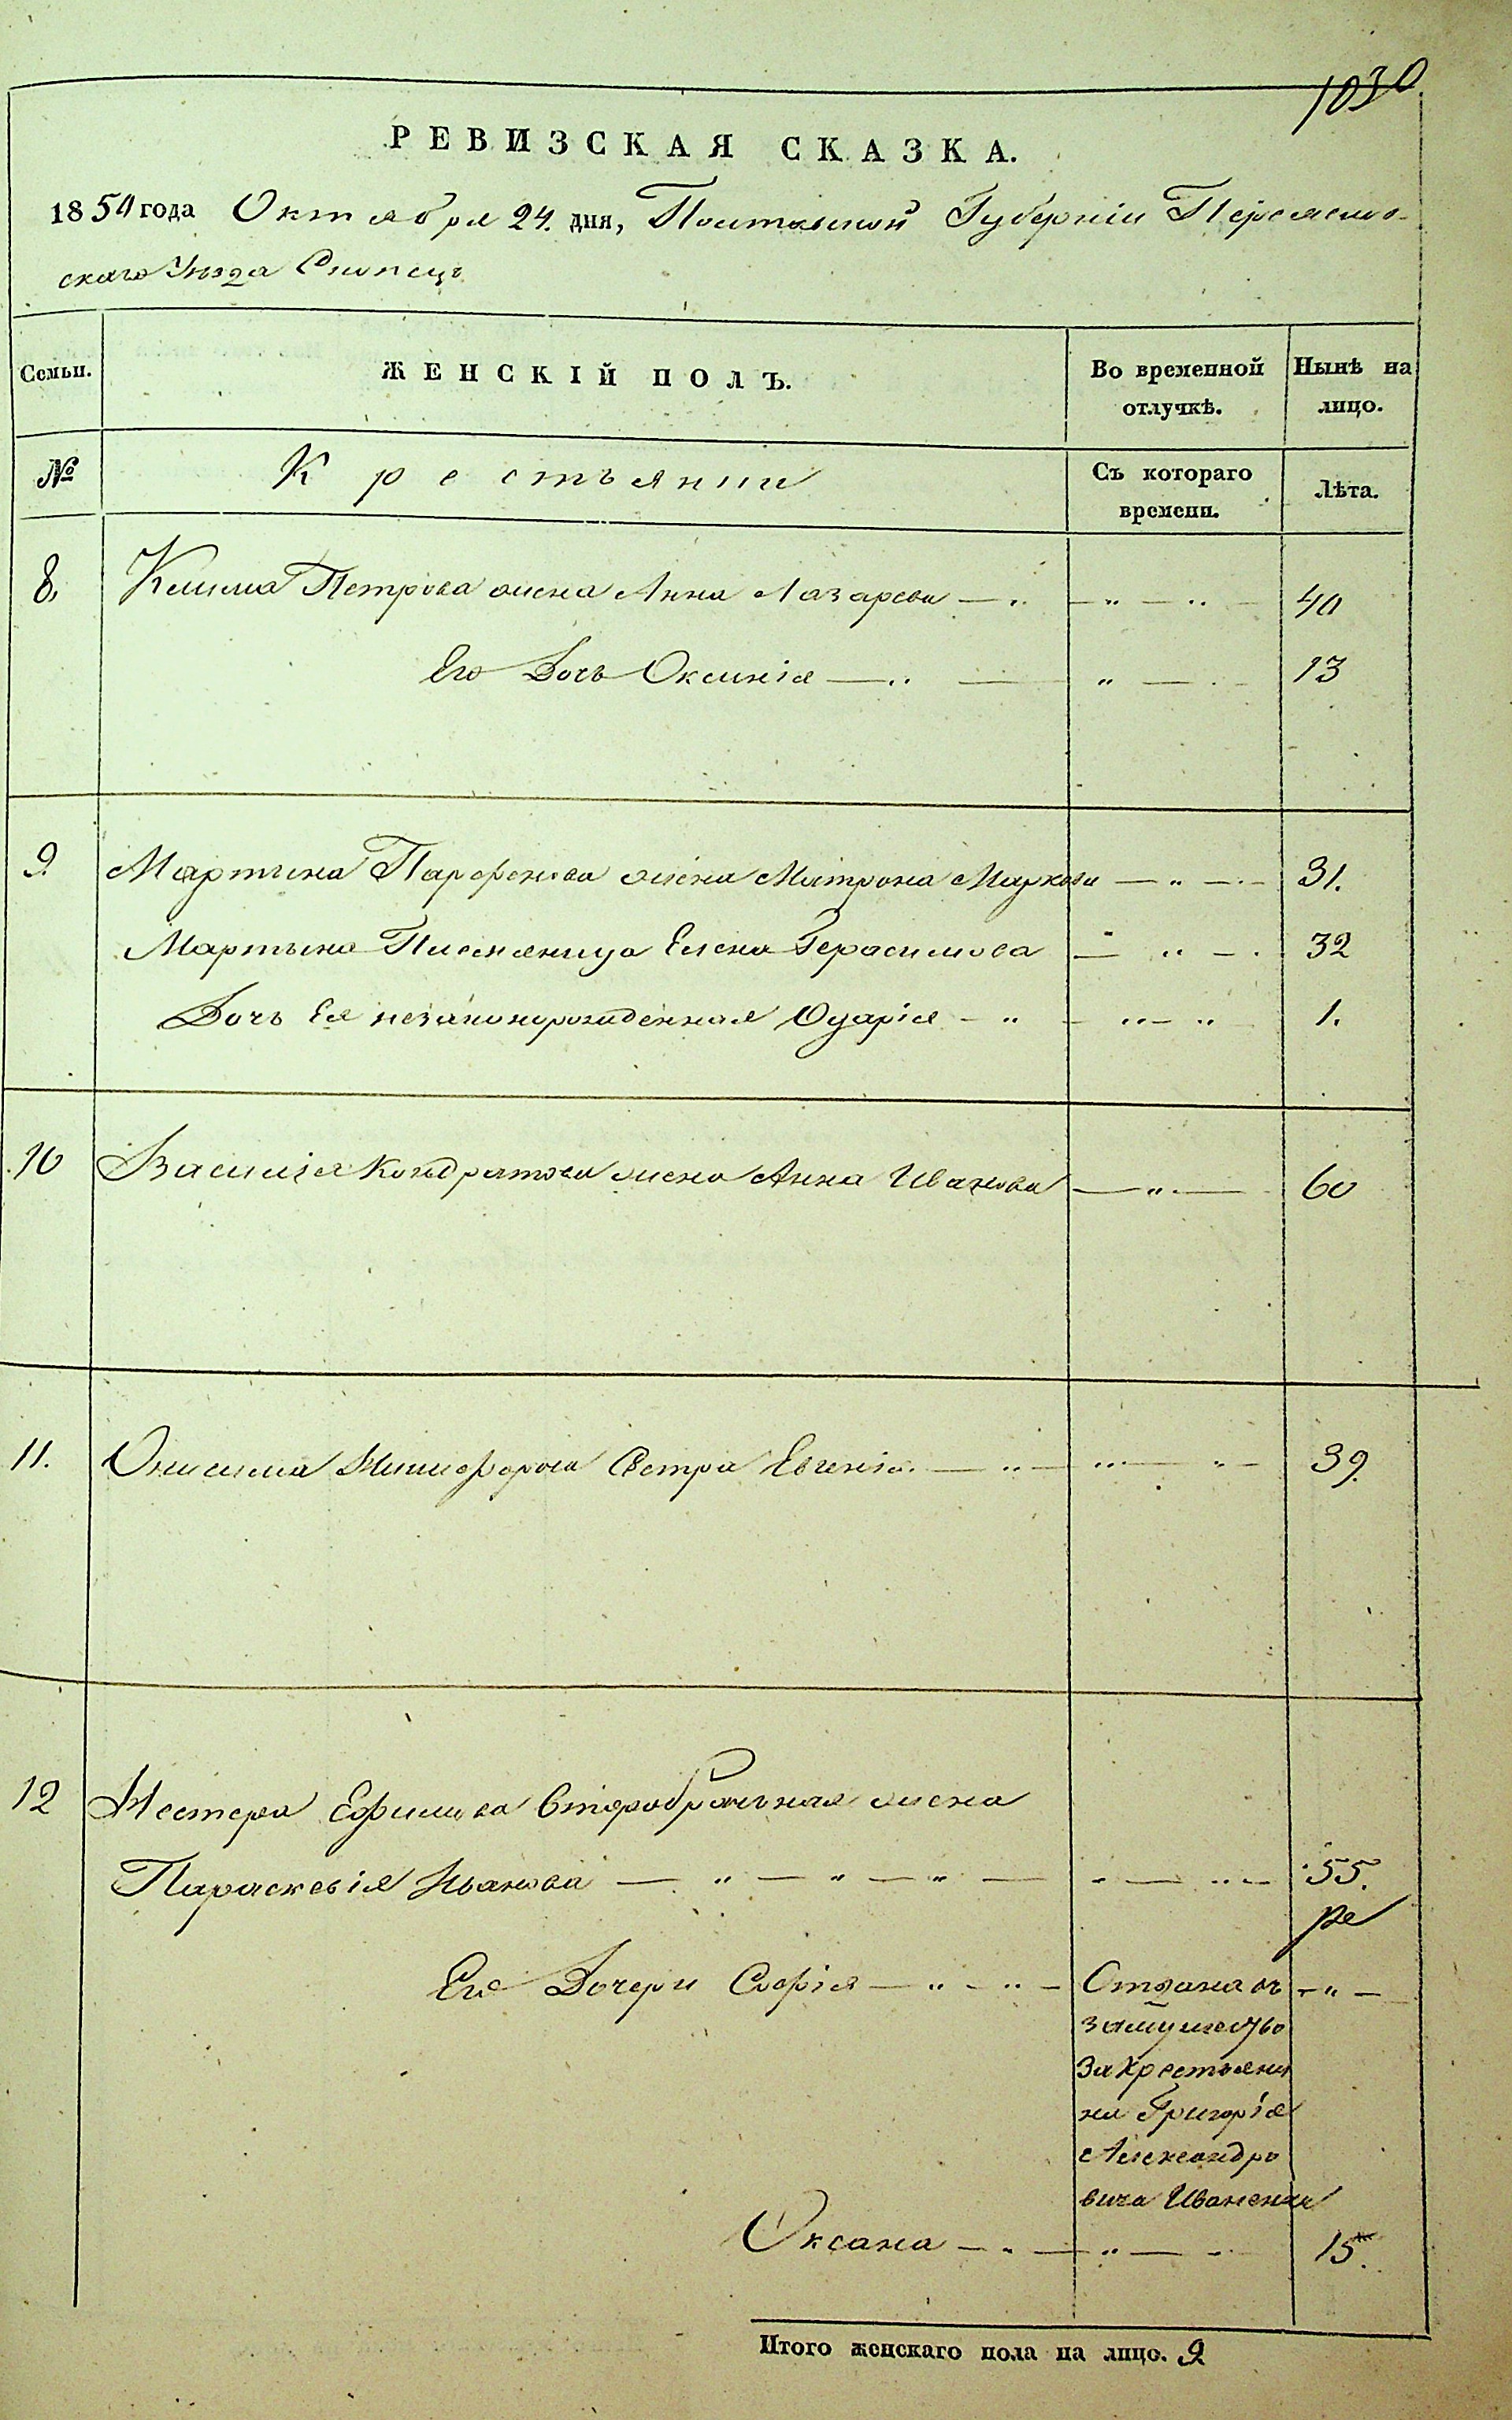 1030
РЕВИЗСКАЯ СКАЗКА.
1850 года Октября 24. дня, Полтавской Губерніи Переяслов-
скаго Уѣзда Скопецъ
Семьи. ЖЕНСКІЙ ПОЛЪ. Во временной отлучкѣ. Нынѣ на лицо.
№ Крестьянки Съ котораго времени. Лѣта.
8. Клима Петрова жена Анна Лазарева — „ — „ — 40
Его Дочь Оксинія — „ — „ — 13
9. Мартина Парфенова жена Матрона Маркова — „ — 31.
Мартына Племяница Елена Герасимова — „ — 32
Дочь Ея незаконорожденная Одарія — „ — „ — „ 1.
10 Василія Кондратова жена Анна Иванова — „ — 60
11. Онисима Никифорова Сестра Евгенія — „ — „ — „ — 39.
12 Нестера Ефимова Второбрачная жена
Параскевія Иванова — „ — „ — „ — „ — „ — 55.
Его Дочери Софія — „ — „ — Отдана въ — „ —
замужество
за крестьяни
на Григорія
Александро
вича Иваненка
Оксана — „ — „ — 15.
Итого женскаго пола на лицо. 9